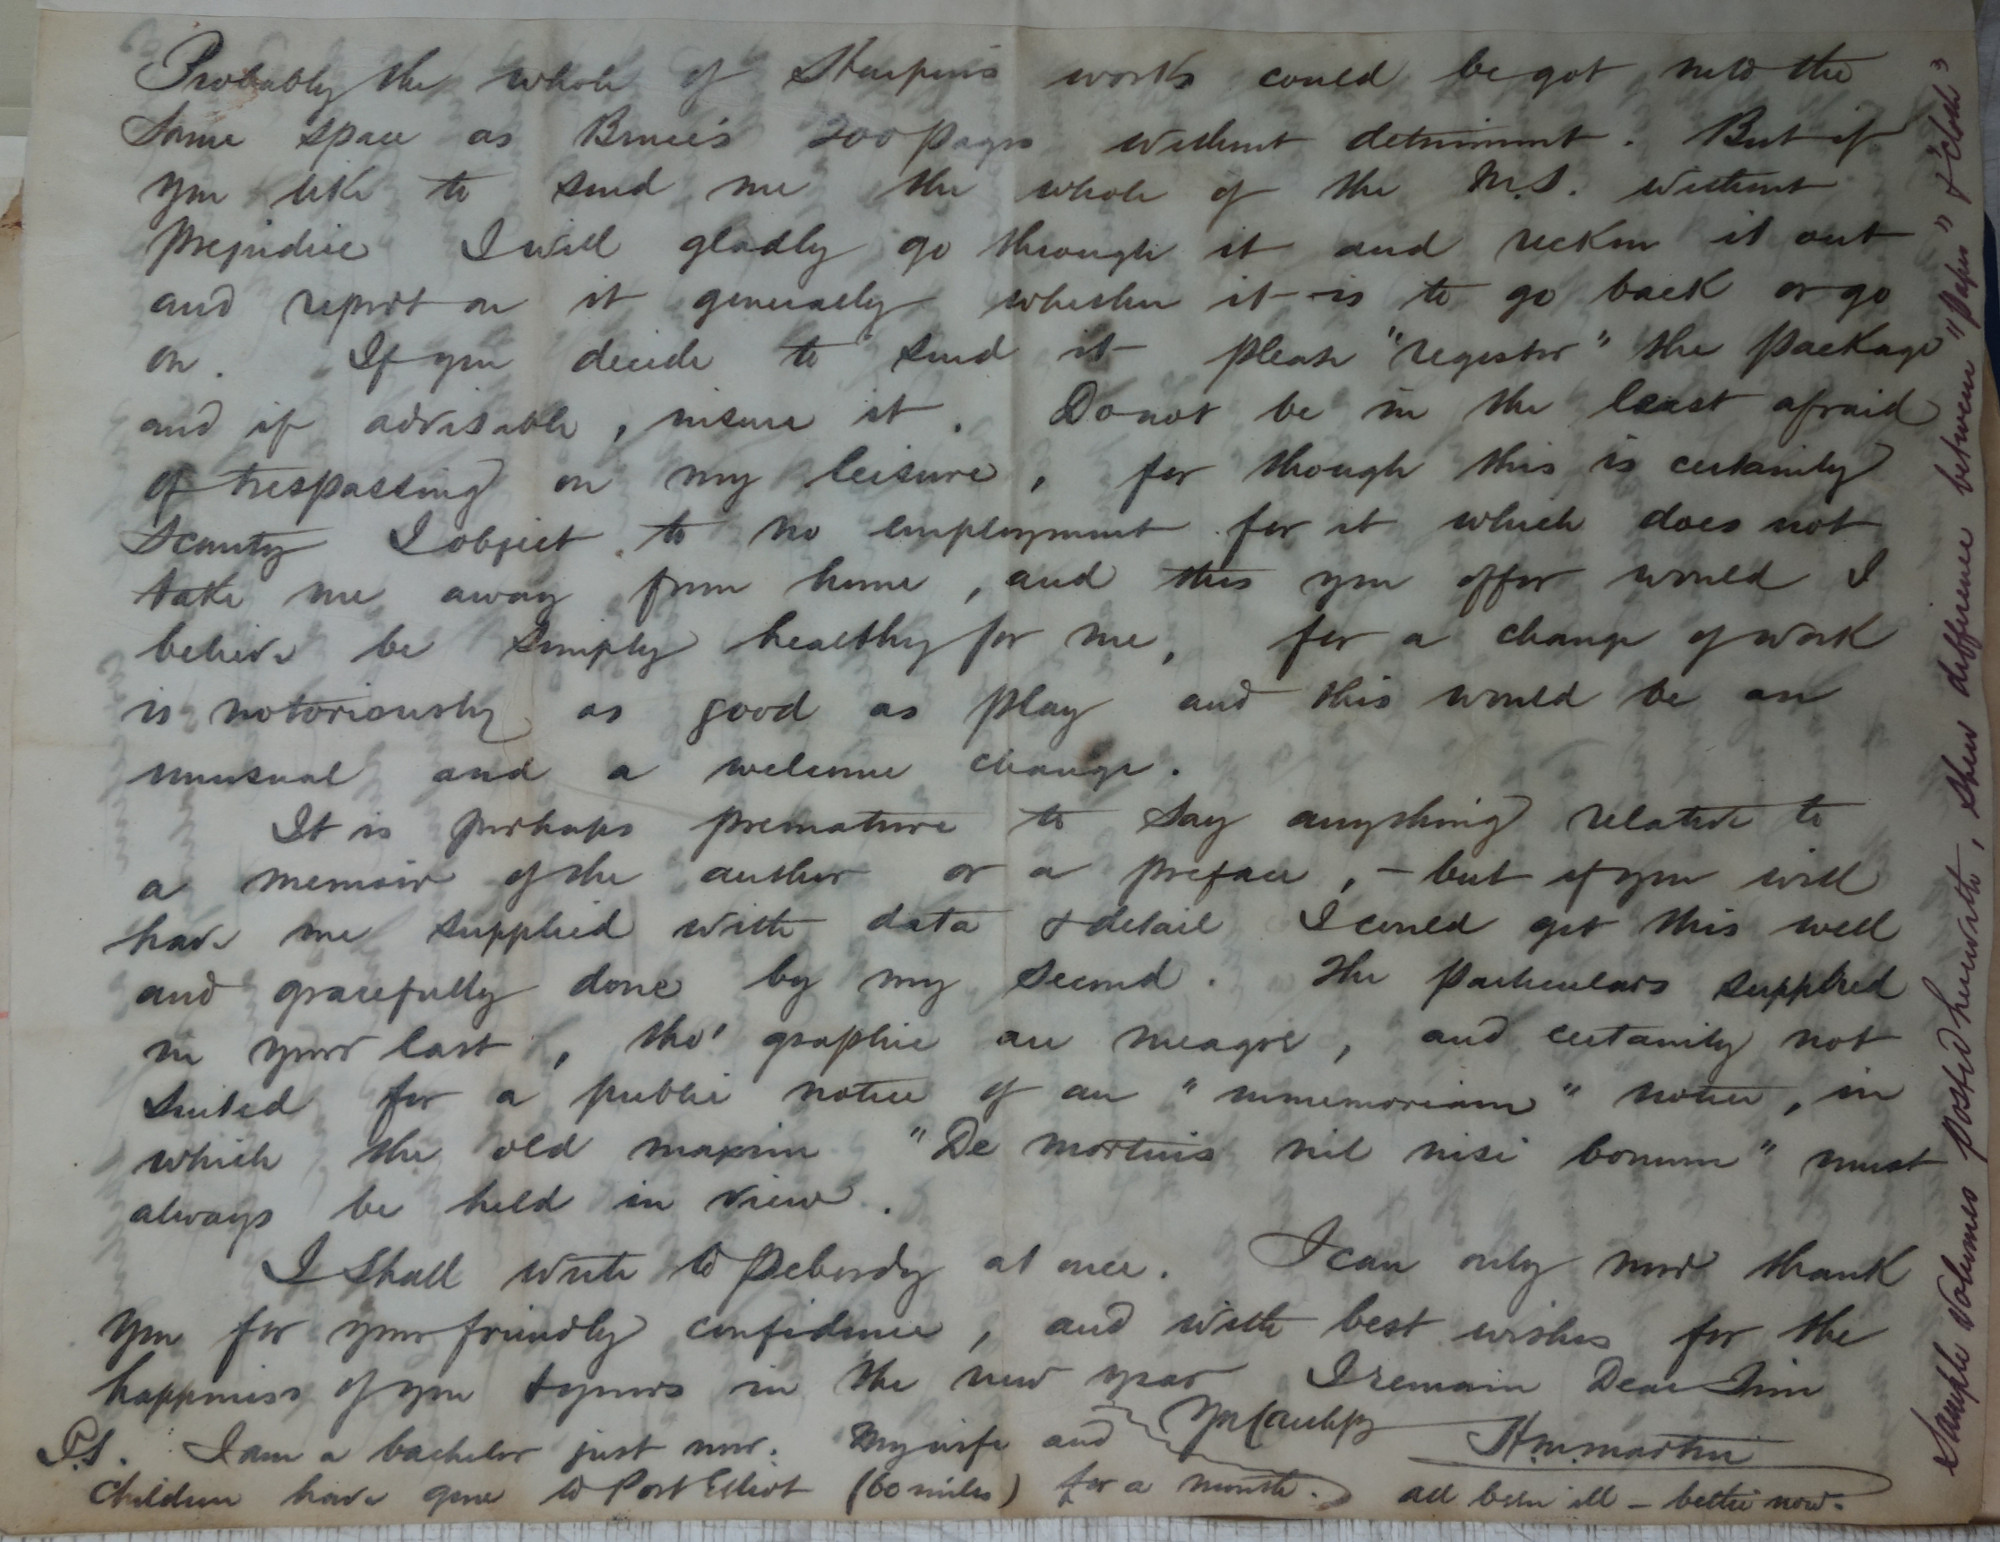 Probably the whole of Sharpin's works could be got into the
same space as Bruce's 200 pages without detriment. But if
you like to send me the whole of the M.S. without
prejudice I will gladly go through it and reckon it out
and report on it generally whether it is to go back or go
on. If you decide to send it please "register" the package
and if advisable, insure it. Do not be in the least afraid
of trespassing on my leisure, for though this is certainly
scanty I object to no employment for it which does not
take me away from home, and this you offer would I
believe be simply healthy for me, for a change of work
is notoriously as good as play and this would be an
unusual and a welcome change.
It is perhaps premature to say anything relative to
a memoir of the author or a preface, – but if you will
have me supplied with data & detail I could get this well
and gracefully done by my second. The particulars supplied
in your last, tho' graphic are meagre, and certainly not
suited for a public notice of an "in memoriam" notice, in
which the old maxim "De mortuis nil nisi bonum" must
always be held in view.
I shall write to at once. I can only now thank
you for your friendly confidence, and with best wishes for the
happiness of you & yours in the new year I remain Dear Jim
H.M. Martin
P.S. I am a bachelor just now. My wife and
children have gone to Port Elliot (60 miles) for a month. all been ill – better now.
Sample volumes posted herewith, shew difference between "paper" & "cloth"